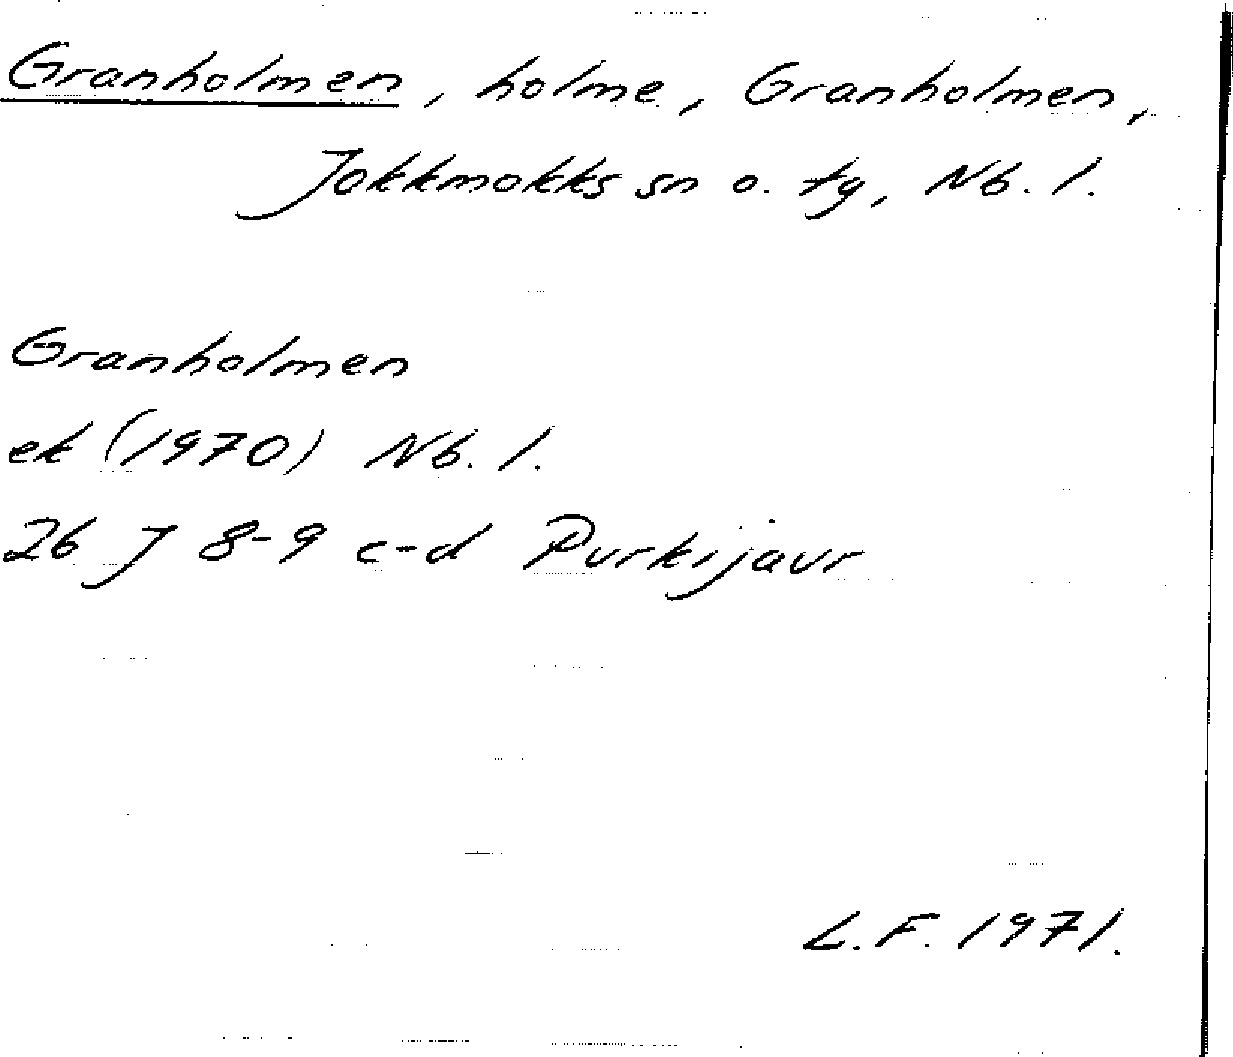 Granholmen, holme, Granholmen,
Jokkmokks sn o. tg, Nb. l.
Granholmen
ek (1970) Nb. l.
26 J 8-9 c-d Purkijaur
L.F. 1971.